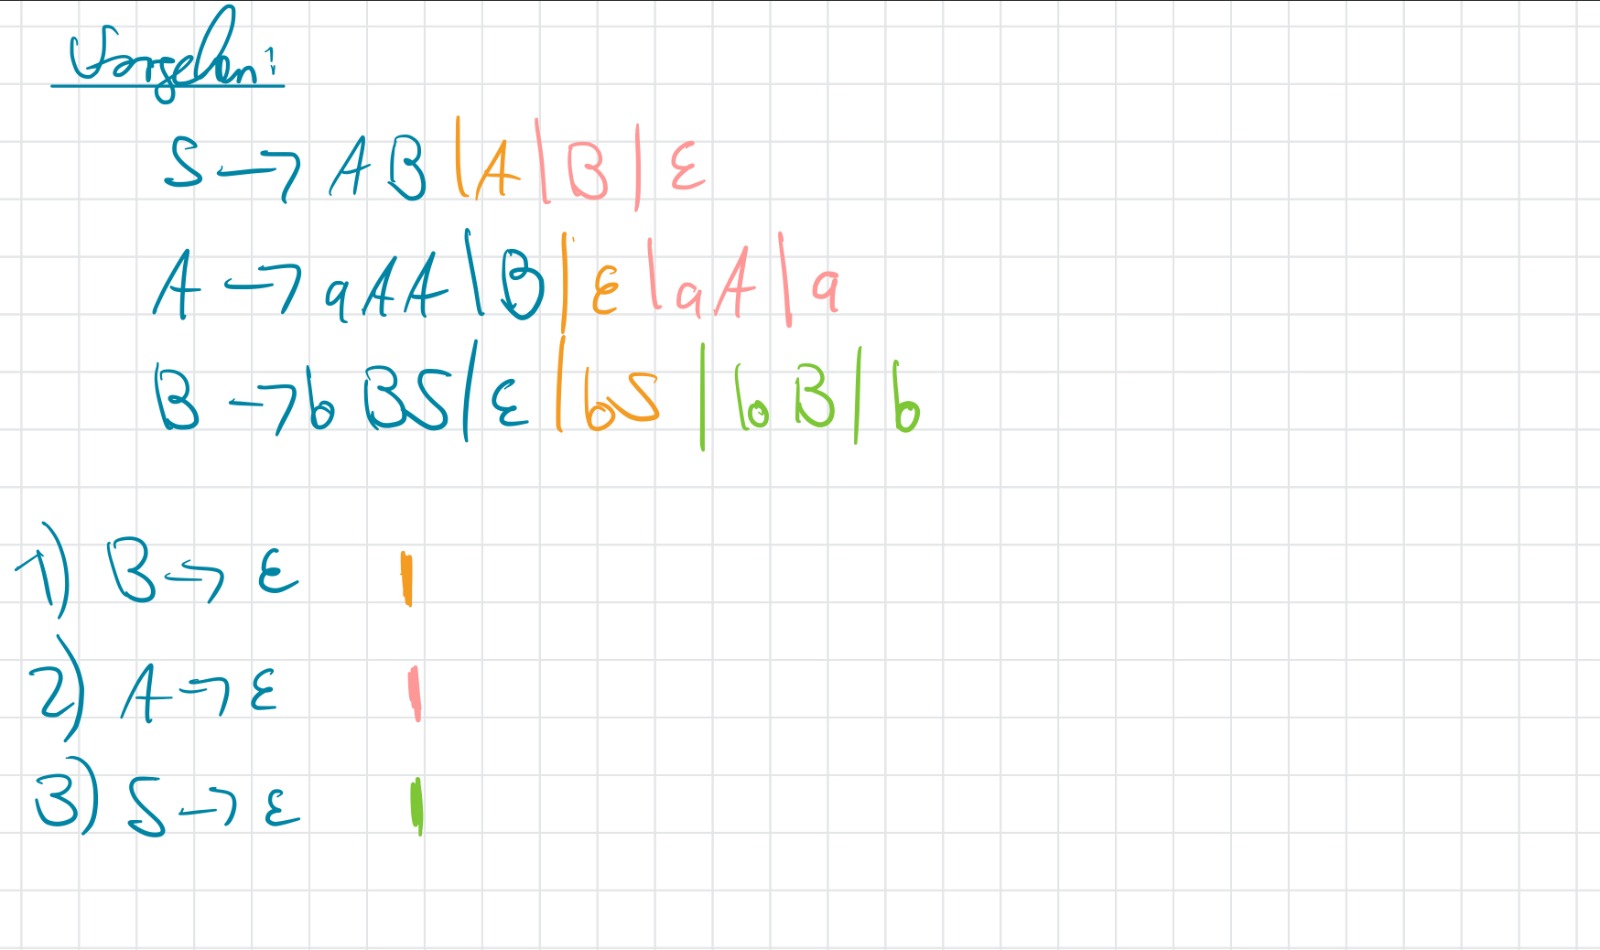 Vorgehen:
S → AB | A | B | ε
A → aAA | B | ε | aA | a
B → bBS | ε | bS | bB | b
1) B → ε |
2) A → ε |
3) S → ε |